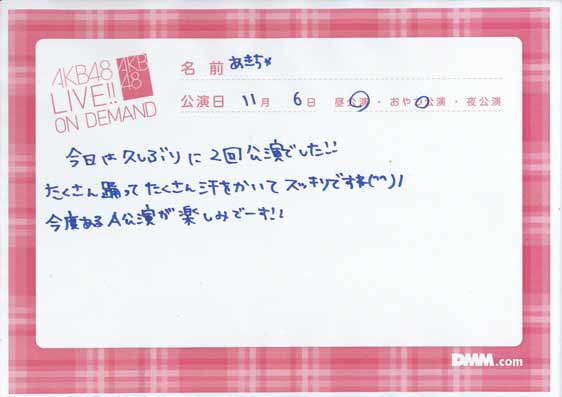 AKB48
LIVE!!
ON DEMAND
AKB
48
名前 あきちゃ
公演日 11月 6日 昼公演・おやつ公演・夜公演
今日は久しぶりに2回公演でした!!
たくさん踊ってたくさん汗をかいてスッキリですね(^^)!
今度あるA公演が楽しみでーす!!
DMM.com